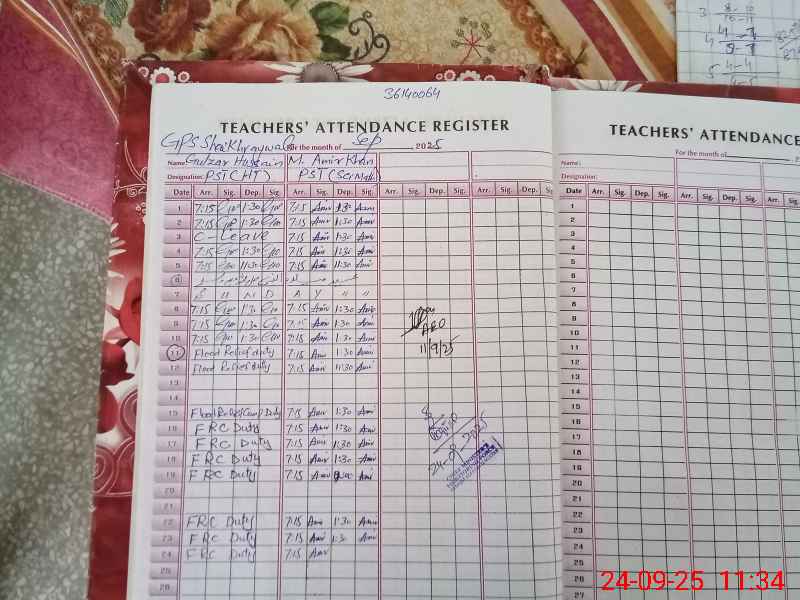 36140064
TEACHERS' ATTENDANCE REGISTER
GPS Sheikhraywal For the month of Sep 2025
Name: Gulzar Hussain M. Amir Khan
Designation: PST (HT) PST (Sci Math)
Date Arr. Sig. Dep. Sig. Arr. Sig. Dep. Sig. Arr. Sig. Dep. Sig. Arr. Sig. Dep. Sig.
1 7:15 1:30 7:15 Amir 1:30 Amir
2 7:15 1:30 7:15 Amir 1:30 Amir
3 C-Leave 7:15 Amir 1:30 Amir
4 7:15 1:30 7:15 Amir 1:30 Amir
5 7:15 11:30 7:15 Amir 11:30 Amir
6
7 S U N D A Y " "
8 7:15 1:30 7:15 Amir 1:30 Amir
9 7:15 1:30 7:15 Amir 1:30 Amir
10 7:15 1:30 7:15 Amir 1:30 Amir
AEO
11 Flood Relief duty 7:15 Amir 1:30 Amir
11/9/25
12 Flood Relief Duty 7:15 Amir 11:30 Amir
13
14
15 Flood Relief Camp Duty 7:15 Amir 1:30 Amir
16 FRC Duty 7:15 Amir 1:30 Amir
17 FRC Duty 7:15 Amir 1:30 Amir
18 FRC Duty 7:15 Amir 1:30 Amir
24-09-2025
19 FRC Duty 7:15 Amir Amir
20
21
22 FRC Duty 7:15 Amir 1:30 Amir
23 FRC Duty 7:15 Amir 1:30 Amir
24 FRC Duty 7:15 Amir
25
26
TEACHERS' ATTENDANCE
For the month of
Name:
Designation:
Date Arr. Sig. Dep. Sig. Arr. Sig. Dep. Sig. Arr. Sig.
1
2
3
4
5
6
7
8
9
10
11
12
13
14
15
16
17
18
19
20
21
22
23
24
25
26
27
24-09-25 11:34